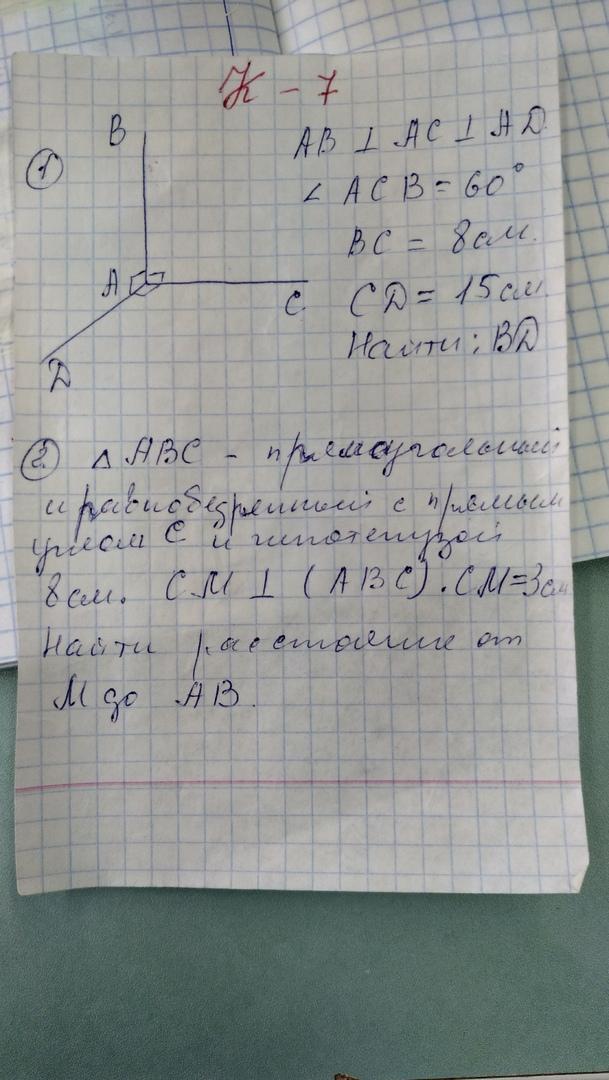 К - 7
① AB ⊥ AC ⊥ AD.
B
A
C
D
∠ ACB = 60°
BC = 8 см.
CD = 15 см.
Найти: BD
② △ ABC - прямоугольный
и равнобедренный с прямым
углом C и гипотенузой
8 см. CM ⊥ (ABC). CM = 3 см
Найти расстояние от
M до AB.